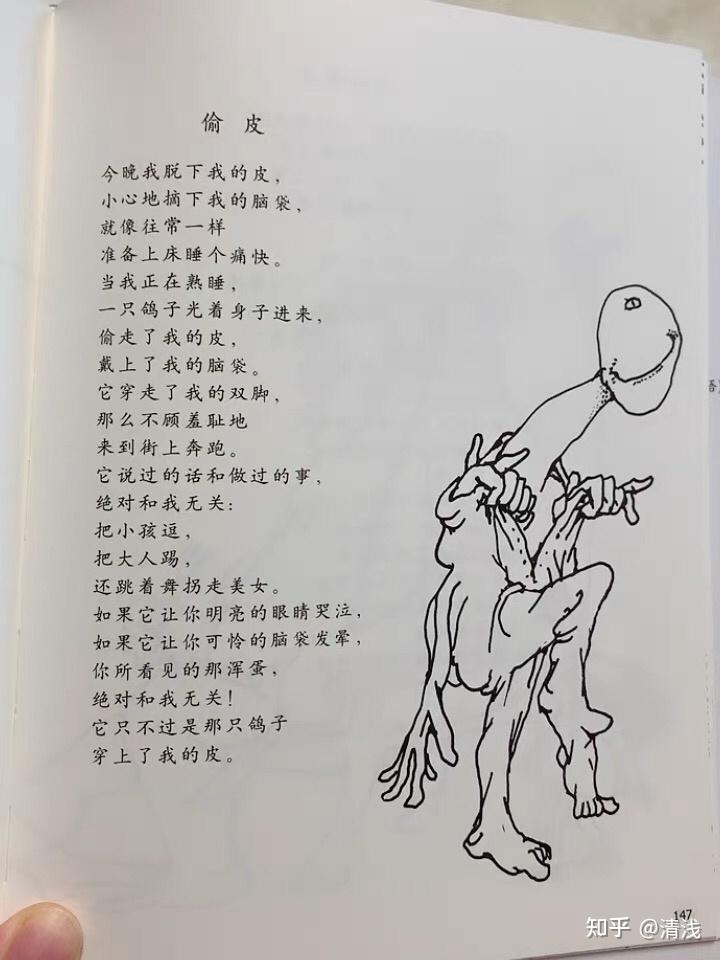 偷皮
今晚我脱下我的皮，
小心地摘下我的脑袋，
就像往常一样
准备上床睡个痛快。
当我正在熟睡，
一只鸽子光着身子进来，
偷走了我的皮，
戴上了我的脑袋。
它穿走了我的双脚，
那么不顾羞耻地
来到街上奔跑。
它说过的话和做过的事，
绝对和我无关：
把小孩逗，
把大人踢，
还跳着舞拐走美女。
如果它让你明亮的眼睛哭泣，
如果它让你可怜的脑袋发晕，
你所看见的那浑蛋，
绝对和我无关！
它只不过是那只鸽子
穿上了我的皮。
147
知乎 @清浅